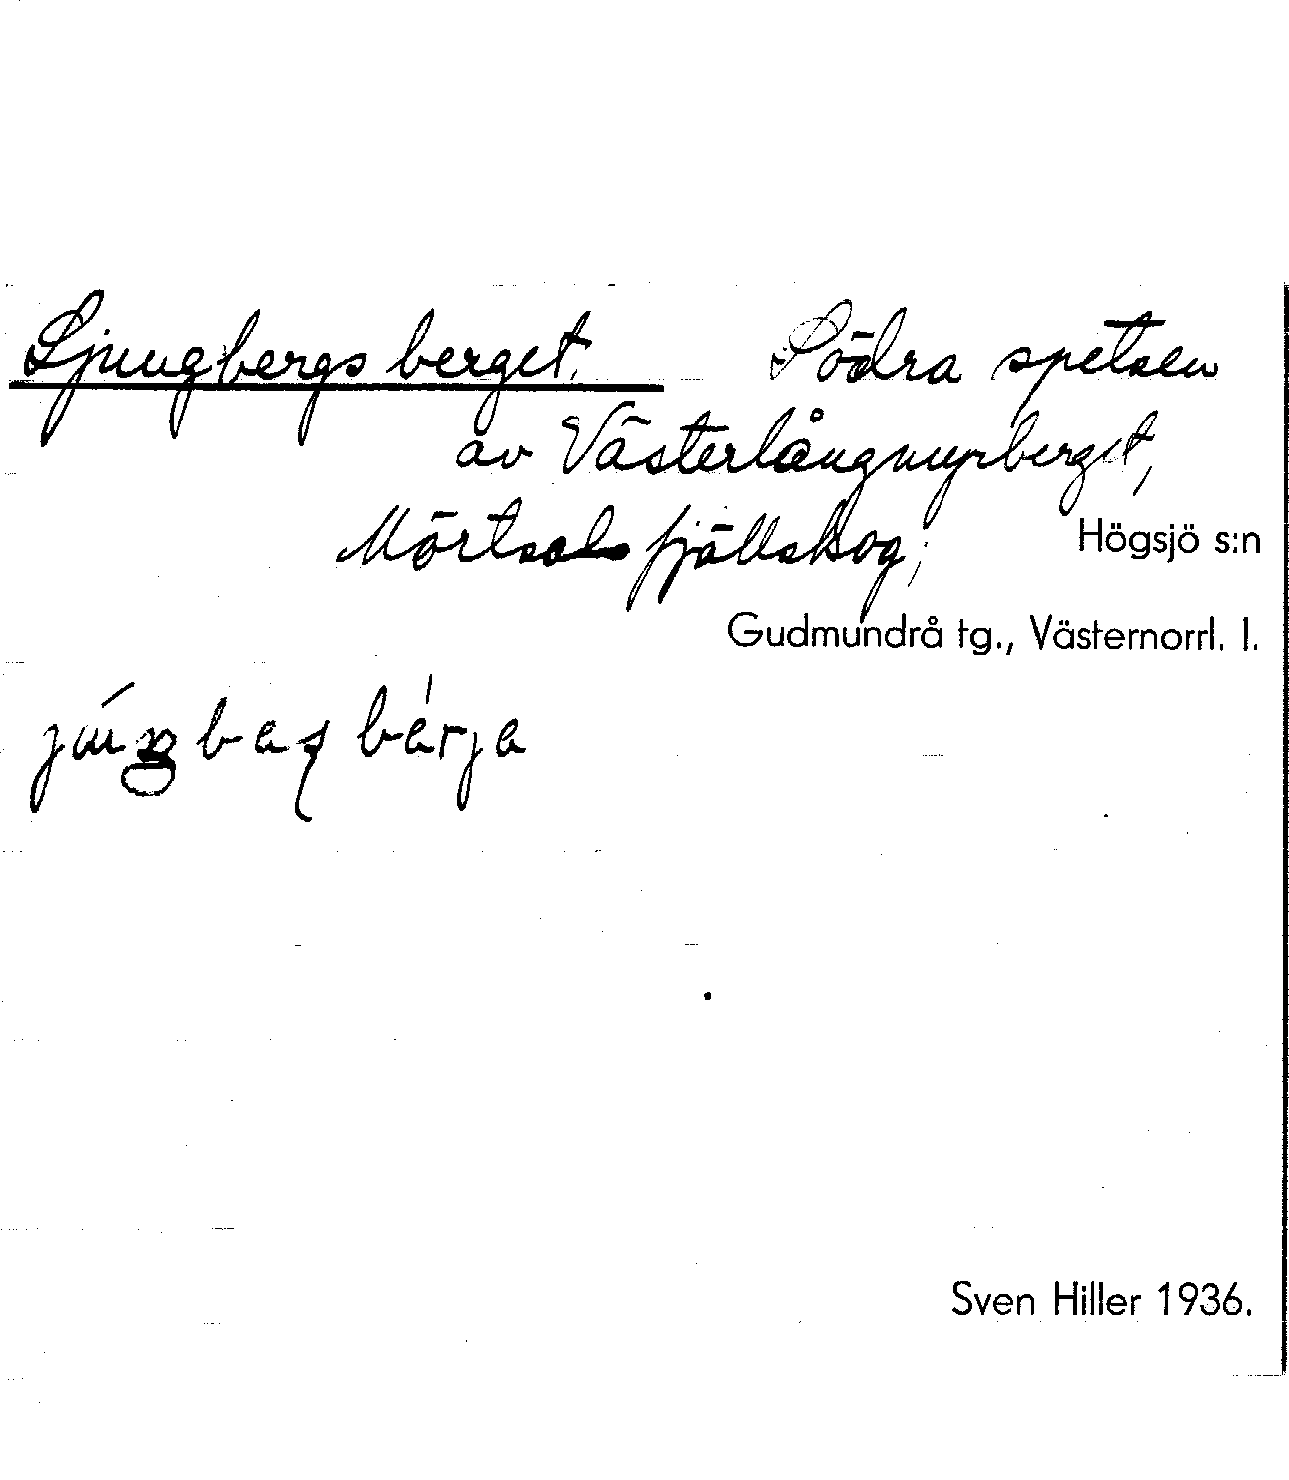 Ljungbergsberget. Södra spetsen
av Västerlångmyrberget,
Mörtsals fjällskog,
Högsjö s:n
Gudmundrå tg., Västernorrl. l.
Sven Hiller 1936.